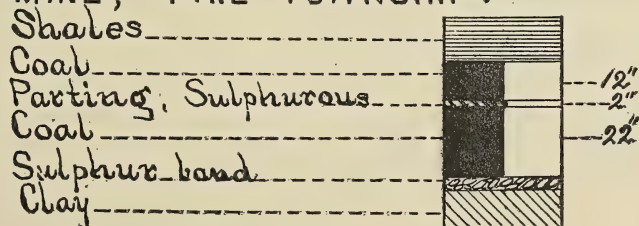 Shales
Coal 12"
Parting, Sulphurous 2"
Coal 22"
Sulphur band
Clay